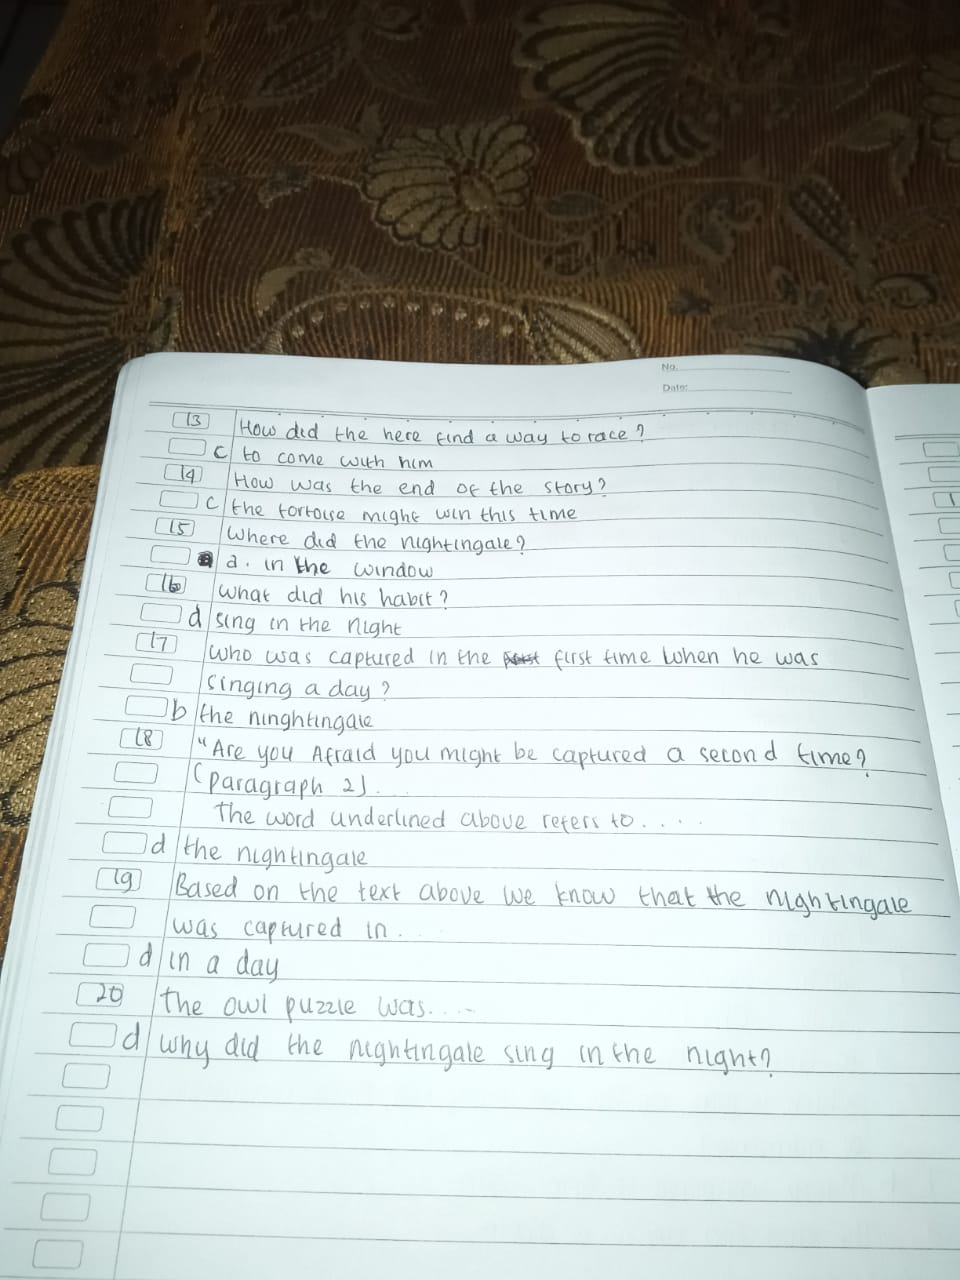 No.
Date:
13 How did the here find a way to race?
c to come with him
14 How was the end of the story?
c the tortoise might win this time
15 Where did the nightingale?
a. in the window
16 what did his habit?
d sing in the night
17 who was captured in the first time when he was
singing a day?
b the ninghtingale
18 "Are you Afraid you might be captured a second time?
(paragraph 2).
The word underlined above refers to....
d the nightingale
19 Based on the text above we know that the nightingale
was captured in....
d in a day
20 the owl puzzle was....
d why did the nightingale sing in the night?
1